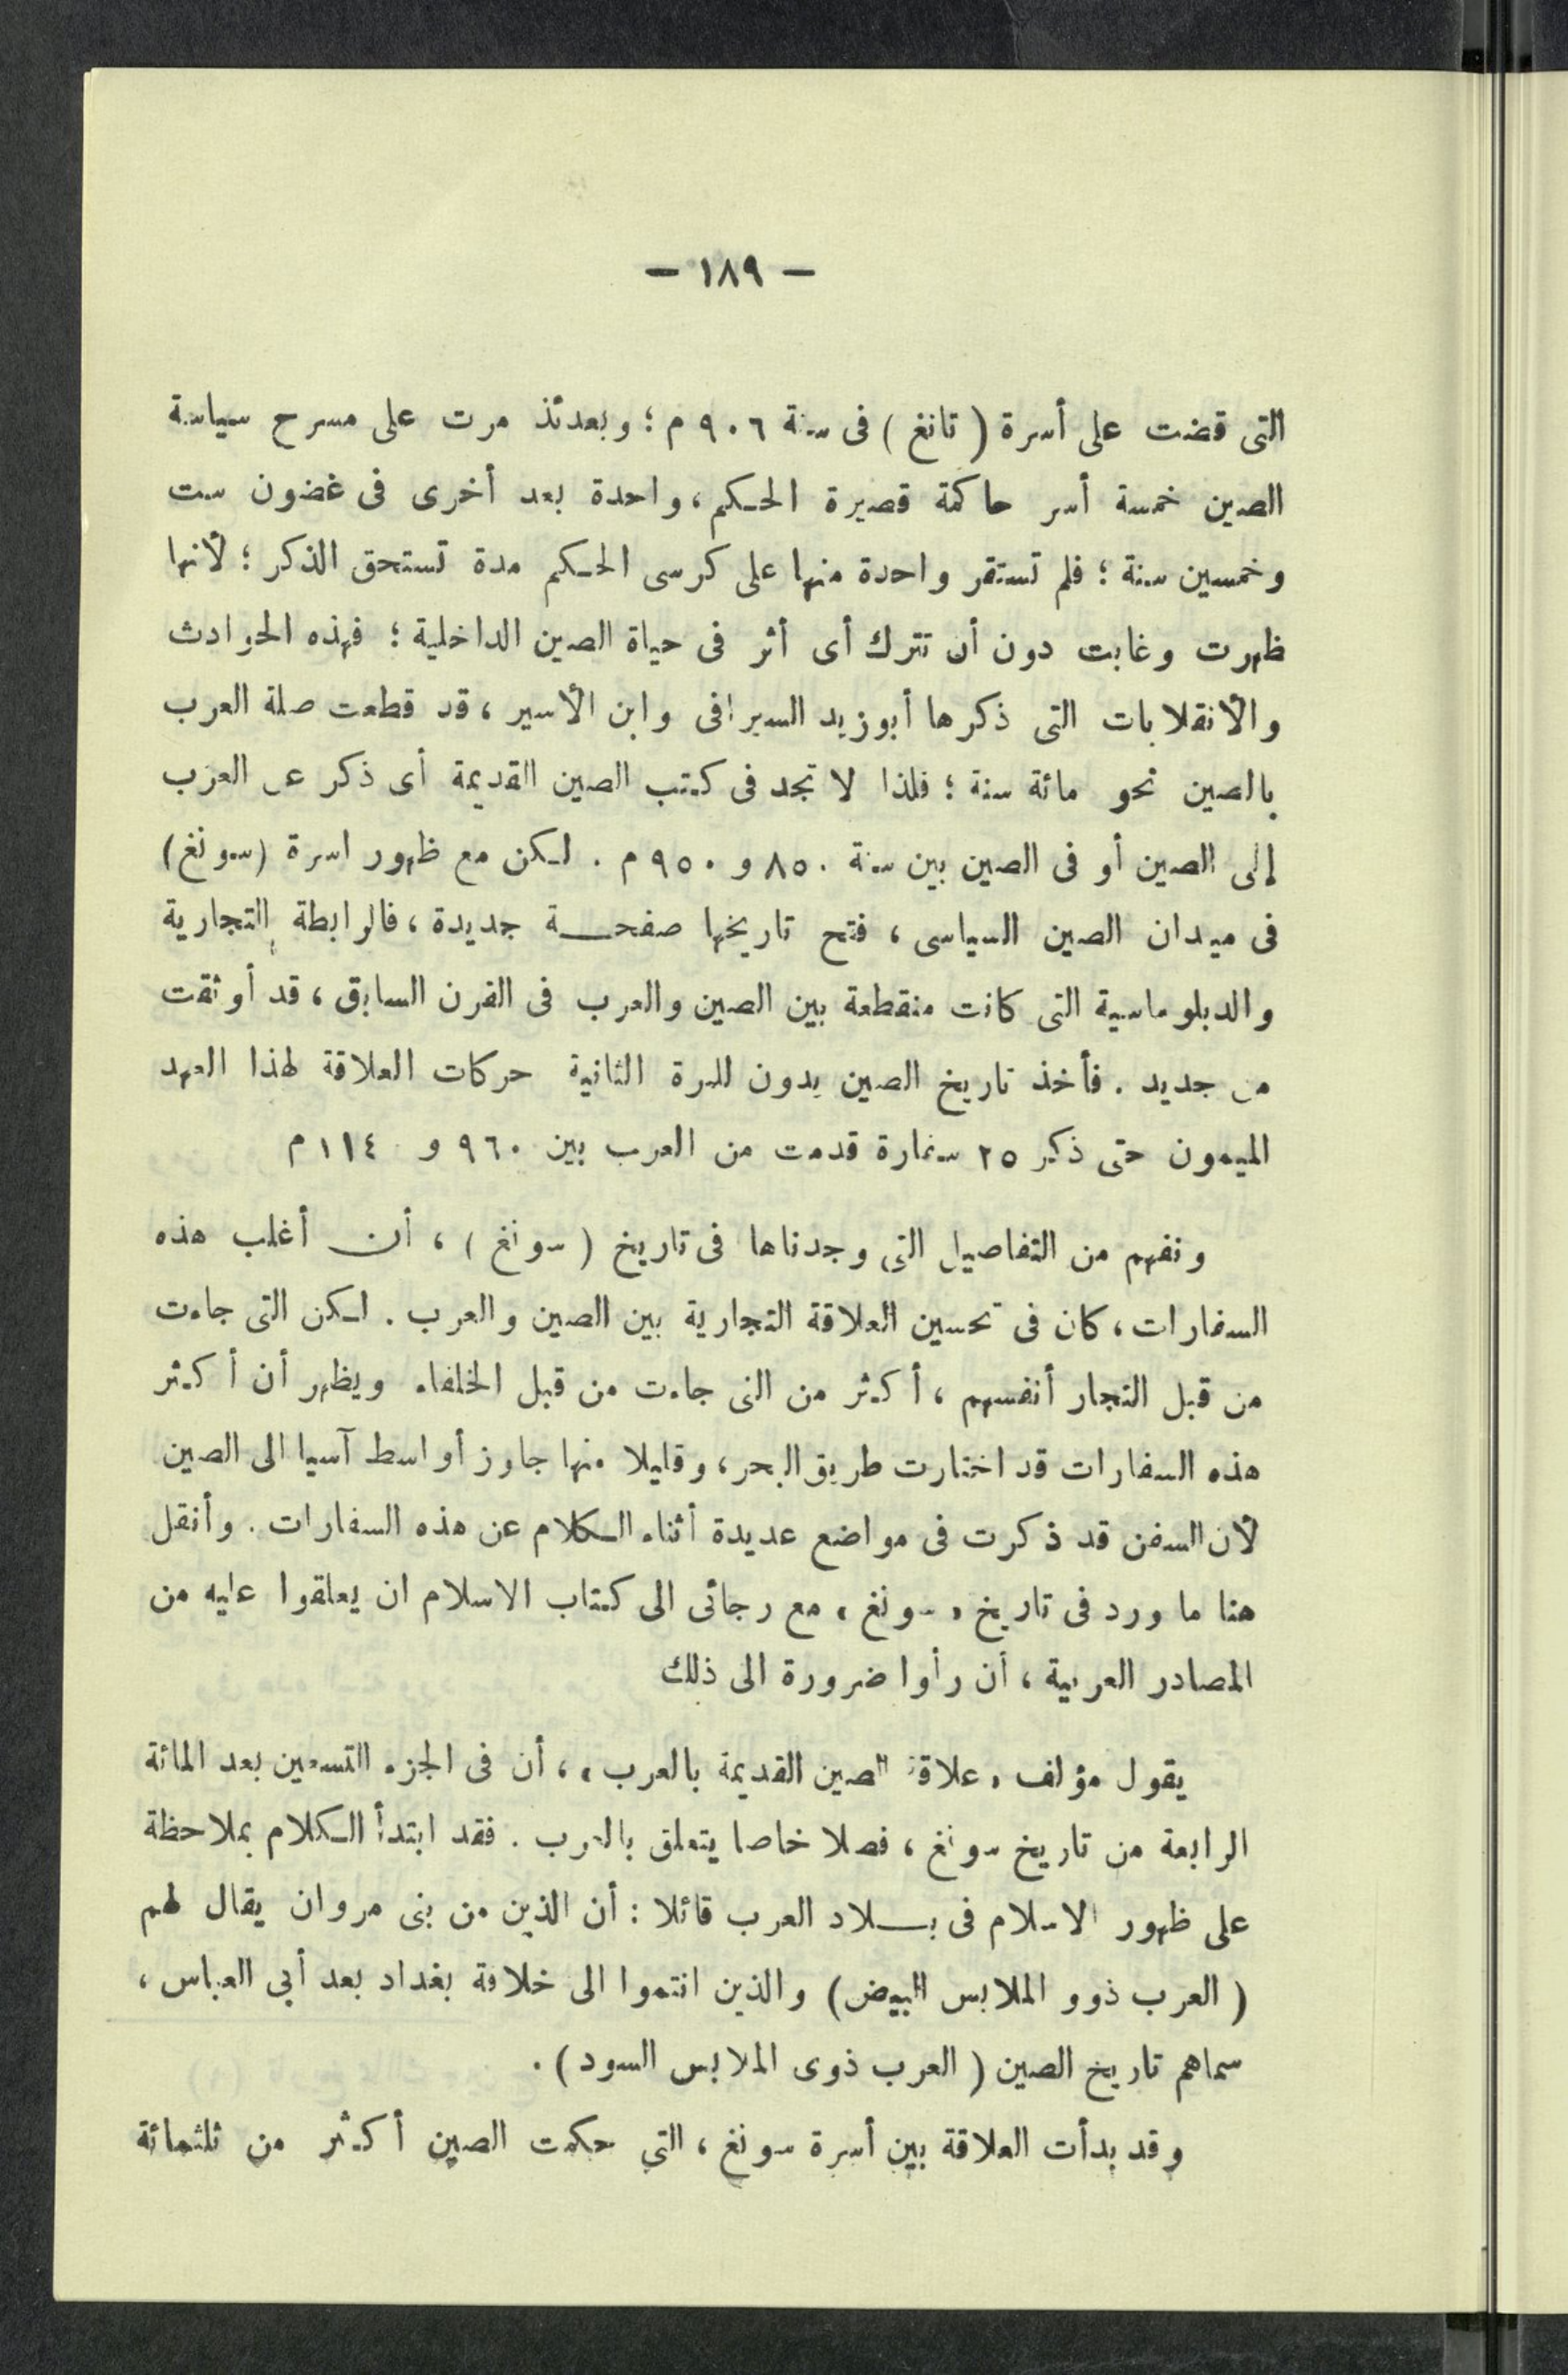 — ١٨٩ —
التى قضت على أسرة ( تانغ ) فى سنة ٩٠٦ م ؛ وبعدئذ مرت على مسرح سياسة
الصين خمسة أسر حاكمة قصيرة الحكم ، واحدة بعد أخرى فى غضون ست
وخمسين سنة ؛ فلم تستقر واحدة منها على كرسى الحكم مدة تستحق الذكر ؛ لأنها
ظهرت وغابت دون أن تترك أى أثر فى حياة الصين الداخلية ؛ فهذه الحوادث
والأنقلابات التى ذكرها أبو زيد السيرافى وابن الأسير ، قد قطعت صلة العرب
بالصين نحو مائة سنة ؛ فلذا لا تجد فى كتب الصين القديمة أى ذكر عن العرب
إلى الصين أو فى الصين بين سنة ٨٥٠ و ٩٥٠ م . لكن مع ظهور اسرة (سونغ)
فى ميدان الصين السياسى ، فتح تاريخها صفحة جديدة ، فالرابطة التجارية
والدبلوماسية التى كانت منقطعة بين الصين والعرب فى القرن السابق ، قد أوثقت
من جديد . فأخذ تاريخ الصين يدون للمرة الثانية حركات العلاقة لهذا العهد
الميمون حتى ذكر ٢٥ سفارة قدمت من العرب بين ٩٦٠ و ١١٤ م
ونفهم من التفاصيل التى وجدناها فى تاريخ ( سونغ ) ، أن أغلب هذه
السفارات ، كان فى تحسين العلاقة التجارية بين الصين والعرب . لكن التى جاءت
من قبل التجار أنفسهم ، أكثر من التى جاءت من قبل الخلفاء ويظهر أن أكثر
هذه السفارات قد اختارت طريق البحر ، وقليلا منها جاوز أواسط آسيا الى الصين
لأن السفن قد ذكرت فى مواضع عديدة أثناء الكلام عن هذه السفارات . وأنقل
هنا ما ورد فى تاريخ « سونغ » مع رجائى الى كتاب الاسلام ان يعلقوا عليه من
المصادر العربية ، أن رأوا ضرورة الى ذلك
يقول مؤلف « علاقة الصين القديمة بالعرب » ، أن فى الجزء التسعين بعد المائة
الرابعة من تاريخ سونغ ، فصلا خاصا يتعلق بالعرب . فقد ابتدأ الكلام بملاحظة
على ظهور الاسلام فى بلاد العرب قائلا : أن الذين من بنى مروان يقال لهم
( العرب ذوو الملابس البيض ) والذين انتموا الى خلافة بغداد بعد أبي العباس ،
سماهم تاريخ الصين ( العرب ذوى الملابس السود ) .
وقد بدأت العلاقة بين أسرة سونغ ، التي حكمت الصين أكثر من ثلثمائة